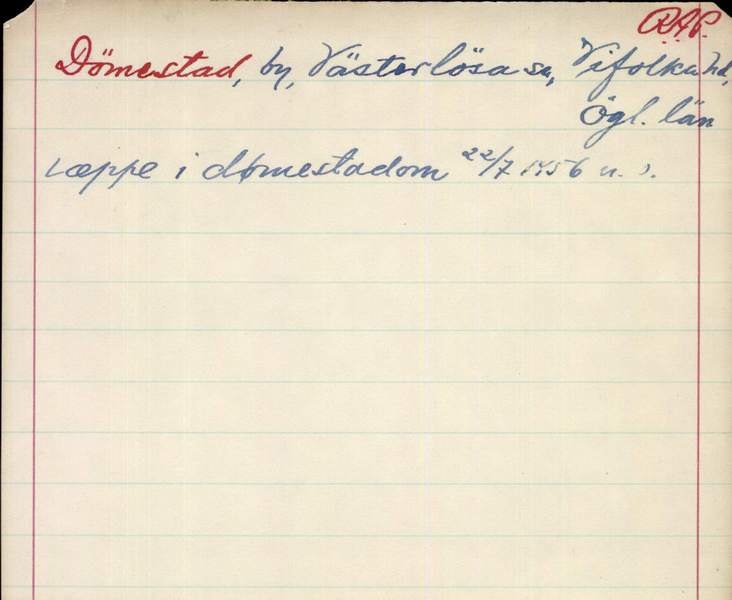 R.A.P.
Dömestad, by, Västerlösa sn, Vifolka hd,
Ögl. län
læppe i dømestadom 22/7 1456 u. s.